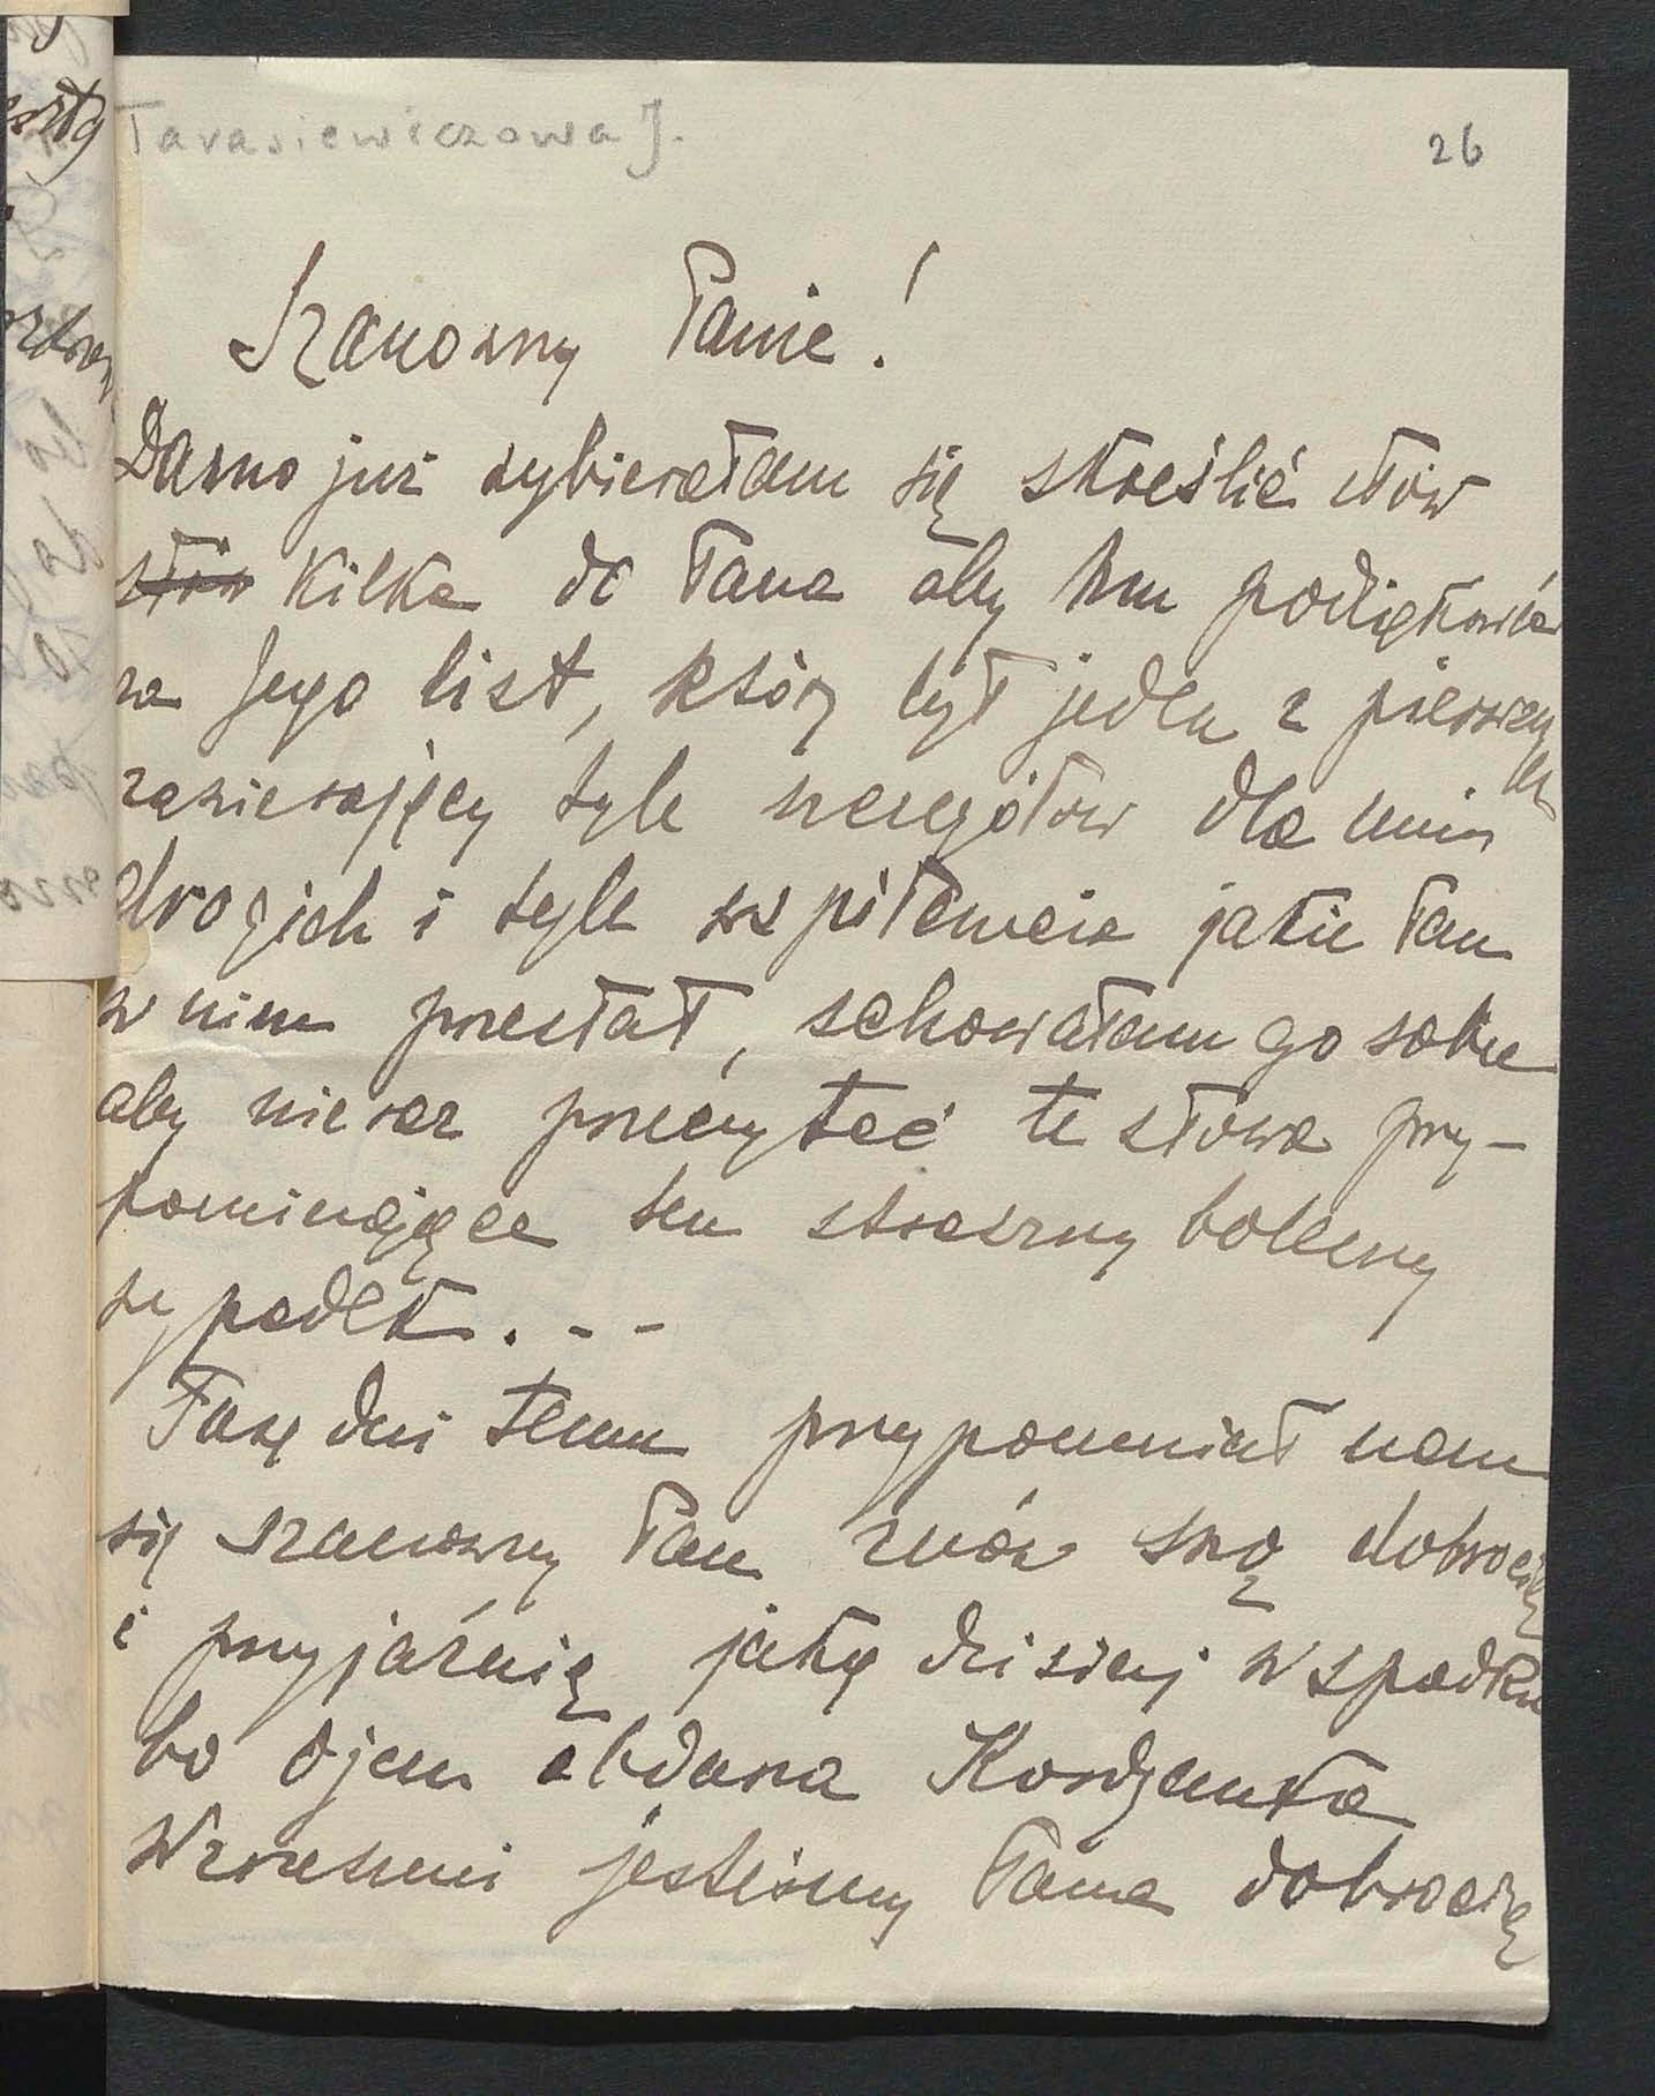 Tarasiewiczowa J.
26
Szanowny Panie!
Dawno już wybierałam się skreślić słów
słów kilka do Pana aby Mu podziękować
za Jego list, który był jeden z pierwszych
zawierający tyle szczegółów dla mnie
drogich i tyle współczucia jakie Pan
w nim przesłał, schowałam go sobie
aby nieraz przeczytać te słowa przy-
pominające ten straszny bolesny
wypadek. - -
Parę dni temu przypomniał nam
się Szanowny Pan znów swą dobrocią
i przyjaźnią jaką dzisiaj w spadku
bo ojcu obdarza
Wzruszeni jesteśmy Pana dobrocią